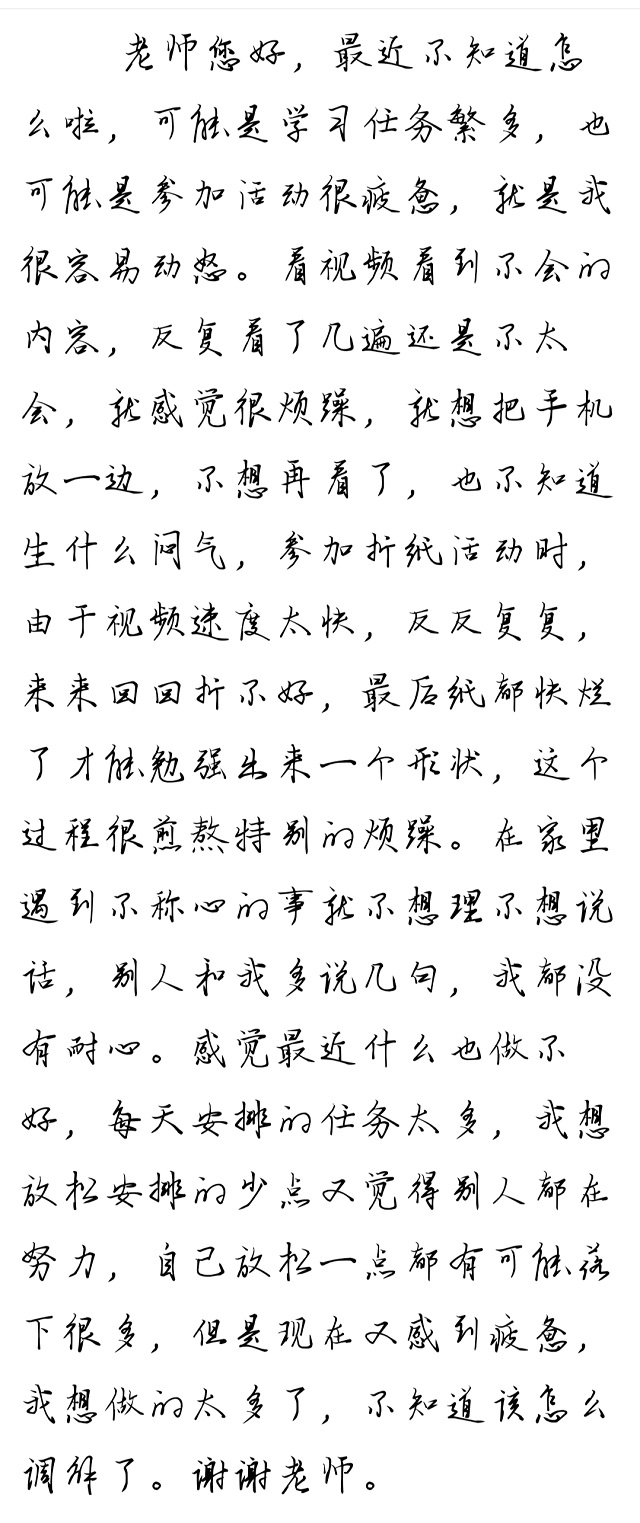 老师您好，最近不知道怎
么啦，可能是学习任务繁多，也
可能是参加活动很疲惫，就是我
很容易动怒。看视频看到不会的
内容，反复看了几遍还是不太
会，就感觉很烦躁，就想把手机
放一边，不想再看了，也不知道
生什么闷气，参加折纸活动时，
由于视频速度太快，反反复复，
来来回回折不好，最后纸都快烂
了才能勉强出来一个形状，这个
过程很煎熬特别的烦躁。在家里
遇到不称心的事就不想理不想说
话，别人和我多说几句，我都没
有耐心。感觉最近什么也做不
好，每天安排的任务太多，我想
放松安排的少点又觉得别人都在
努力，自己放松一点都有可能落
下很多，但是现在又感到疲惫，
我想做的太多了，不知道该怎么
调解了。谢谢老师。